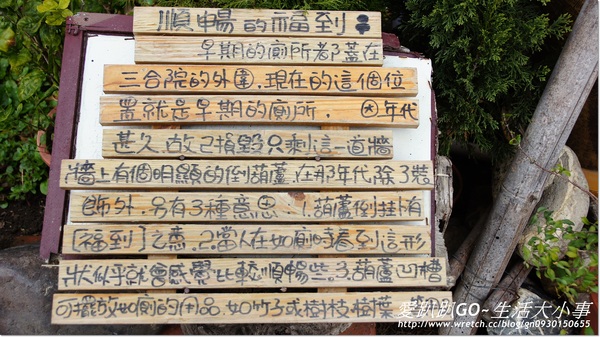 順暢的福到
早期的廁所都蓋在
三合院的外圍.現在的這個位
置就是早期的廁所. 因年代
甚久.故已損毀只剩這一道牆
牆上有個明顯的倒葫蘆.在那年代.除了裝
飾外.另有3種意思.1.葫蘆倒掛有
[福到]之意.2.當人在如廁時看到這形
狀似乎就會感覺比較順暢些.3.葫蘆凹槽
可擺放如廁的用品.如竹子或樹枝樹葉
愛趴趴GO~生活大小事
http://www.wretch.cc/blog/gn0930150655